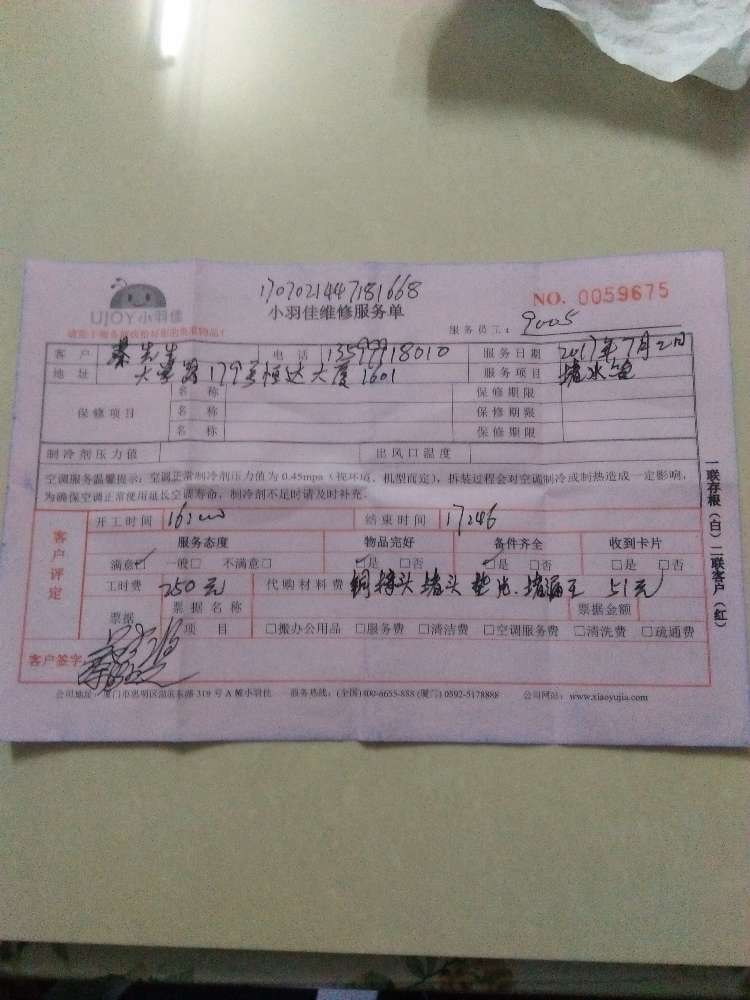 1707021447181668
UJOY小羽佳
小羽佳维修服务单
NO. 0059675
服务员工: 9005
客户 秦先生 电话 13599918010 服务日期 2017年7月2日
地址 大学路179号恒达大厦1601 服务项目 堵水管
保修项目
名称 保修期限
名称 保修期限
名称 保修期限
制冷剂压力值 出风口温度
空调服务温馨提示: 空调正常制冷剂压力值为 0.45mpa (视环境、机型而定), 拆装过程会对空调制冷或制热造成一定影响,
为确保空调正常使用延长空调寿命, 制冷剂不足时请及时补充.
客户评定
开工时间 16:00 结束时间 17:46
服务态度 物品完好 备件齐全 收到卡片
满意□ 一般□ 不满意□ □是 □否 □是 □否 □是 □否
工时费 250元 代购材料费 铜接头 堵头 垫片、堵漏王 51元
票据 票据名称 票据金额
项目 □搬办公用品 □服务费 □清洁费 □空调服务费 □清洗费 □疏通费
客户签字:
公司地址: 厦门市思明区湖滨东路 319 号 A 幢小羽佳 服务热线: (全国) 400-6655-888 (厦门) 0592-5178888 公司网站: www.xiaoyujia.com
一联存根(白) 二联客户(红)